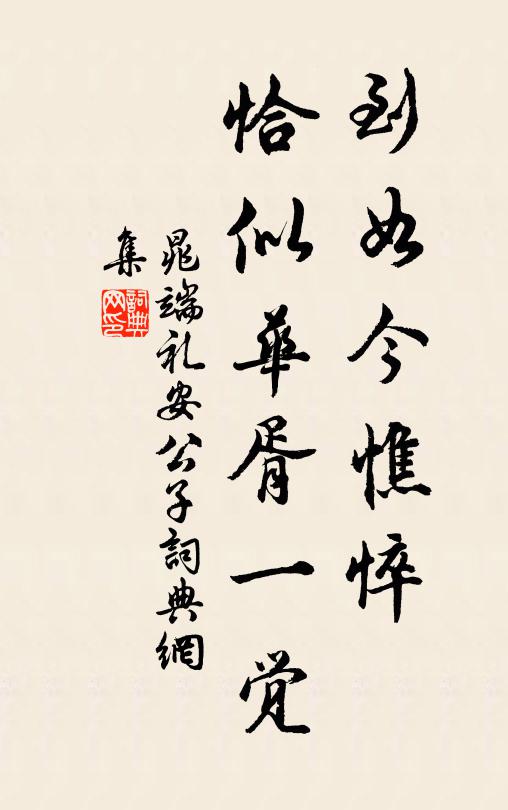 到如今憔悴
恰似華胥一觉
晁端礼安公子詞典網
集
詞典网印